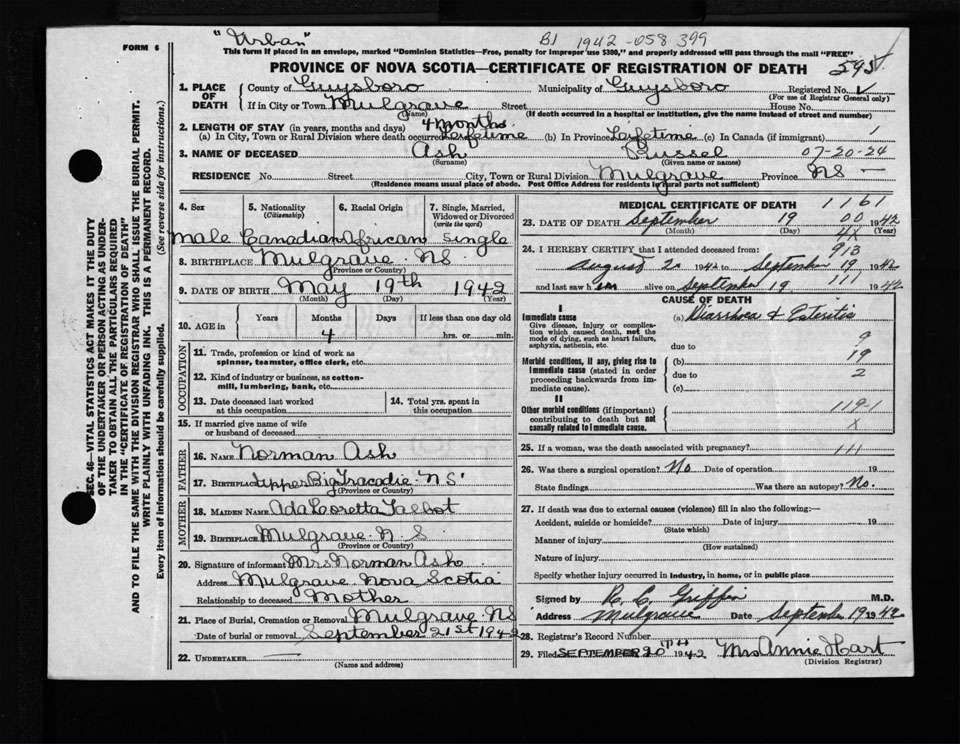 "Urban" B1 1942-058 399
FORM 6 This form if placed in an envelope, marked "Dominion Statistics—Free, penalty for improper use $300," and properly addressed will pass through the mail "FREE"
PROVINCE OF NOVA SCOTIA—CERTIFICATE OF REGISTRATION OF DEATH
1. PLACE OF DEATH County of Guysboro Municipality of Guysboro Registered No.
(For use of Registrar General only)
If in City or Town Mulgrave Street House No.
(Name) (If death occurred in a hospital or institution, give the name instead of street and number)
2. LENGTH OF STAY (in years, months and days) 4 months.
(a) In City, Town or Rural Division where death occurred Lifetime (b) In Province Lifetime (c) In Canada (if immigrant) 1
3. NAME OF DECEASED Ash Russel 07-20-24
(Surname) (Given name or names)
RESIDENCE No. Street City, Town or Rural Division Mulgrave Province NS —
(Residence means usual place of abode. Post Office Address for residents in rural parts not sufficient)
4. Sex 5. Nationality (Citizenship) 6. Racial Origin 7. Single, Married, Widowed or Divorced (write the word)
Male Canadian African Single
8. BIRTHPLACE Mulgrave NS.
(Province or Country)
9. DATE OF BIRTH May 19th 1942
(Month) (Day) (Year)
10. AGE in Years Months Days If less than one day old
4 hrs. or min.
OCCUPATION
11. Trade, profession or kind of work as spinner, teamster, office clerk, etc.
12. Kind of industry or business, as cotton-mill, lumbering, bank, etc.
13. Date deceased last worked at this occupation
14. Total yrs. spent in this occupation
15. If married give name of wife or husband of deceased
FATHER
16. NAME Norman Ash
17. BIRTHPLACE Upper Big Tracadie NS.
(Province or Country)
MOTHER
18. MAIDEN NAME Ada Leoretta Talbot
19. BIRTHPLACE Mulgrave N. S
(Province or Country)
20. Signature of informant Mrs Norman Ash
Address Mulgrave Nova Scotia
Relationship to deceased Mother
21. Place of Burial, Cremation or Removal Mulgrave NS
Date of burial or removal September 21st 1942
22. UNDERTAKER —
(Name and address)
MEDICAL CERTIFICATE OF DEATH 1161
23. DATE OF DEATH September 19 00 1942
(Month) (Day) 4X (Year)
24. I HEREBY CERTIFY that I attended deceased from: 913
August 2 1942 to September 19 1942
and last saw him alive on September 19 111 1942
CAUSE OF DEATH
I
Immediate cause (a) Diarrhoea & Enteritis
Give disease, injury or complication which caused death, not the mode of dying, such as heart failure, asphyxia, asthenia, etc.
due to 9
Morbid conditions, if any, giving rise to immediate cause (stated in order proceeding backwards from immediate cause).
(b) 19
due to 2
(c)
II
Other morbid conditions (if important) contributing to death but not causally related to immediate cause.
119-1
X
25. If a woman, was the death associated with pregnancy? 111
26. Was there a surgical operation? No Date of operation 19
State findings Was there an autopsy? No.
27. If death was due to external causes (violence) fill in also the following:—
Accident, suicide or homicide? Date of injury 19
(State which)
Manner of injury
(How sustained)
Nature of injury
Specify whether injury occurred in industry, in home, or in public place
Signed by Griffin M.D.
Address Mulgrave Date September 19 1942
28. Registrar's Record Number
29. Filed SEPTEMBER 20TH 1942 Mrs Annie Hart
(Division Registrar)
SEC. 46—VITAL STATISTICS ACT MAKES IT THE DUTY
OF THE UNDERTAKER OR PERSON ACTING AS UNDERTAKER TO OBTAIN ALL THE PARTICULARS REQUIRED
IN THE "CERTIFICATE OF REGISTRATION OF DEATH"
AND TO FILE THE SAME WITH THE DIVISION REGISTRAR WHO SHALL ISSUE THE BURIAL PERMIT.
WRITE PLAINLY WITH UNFADING INK. THIS IS A PERMANENT RECORD.
Every item of information should be carefully supplied. (See reverse side for instructions.)